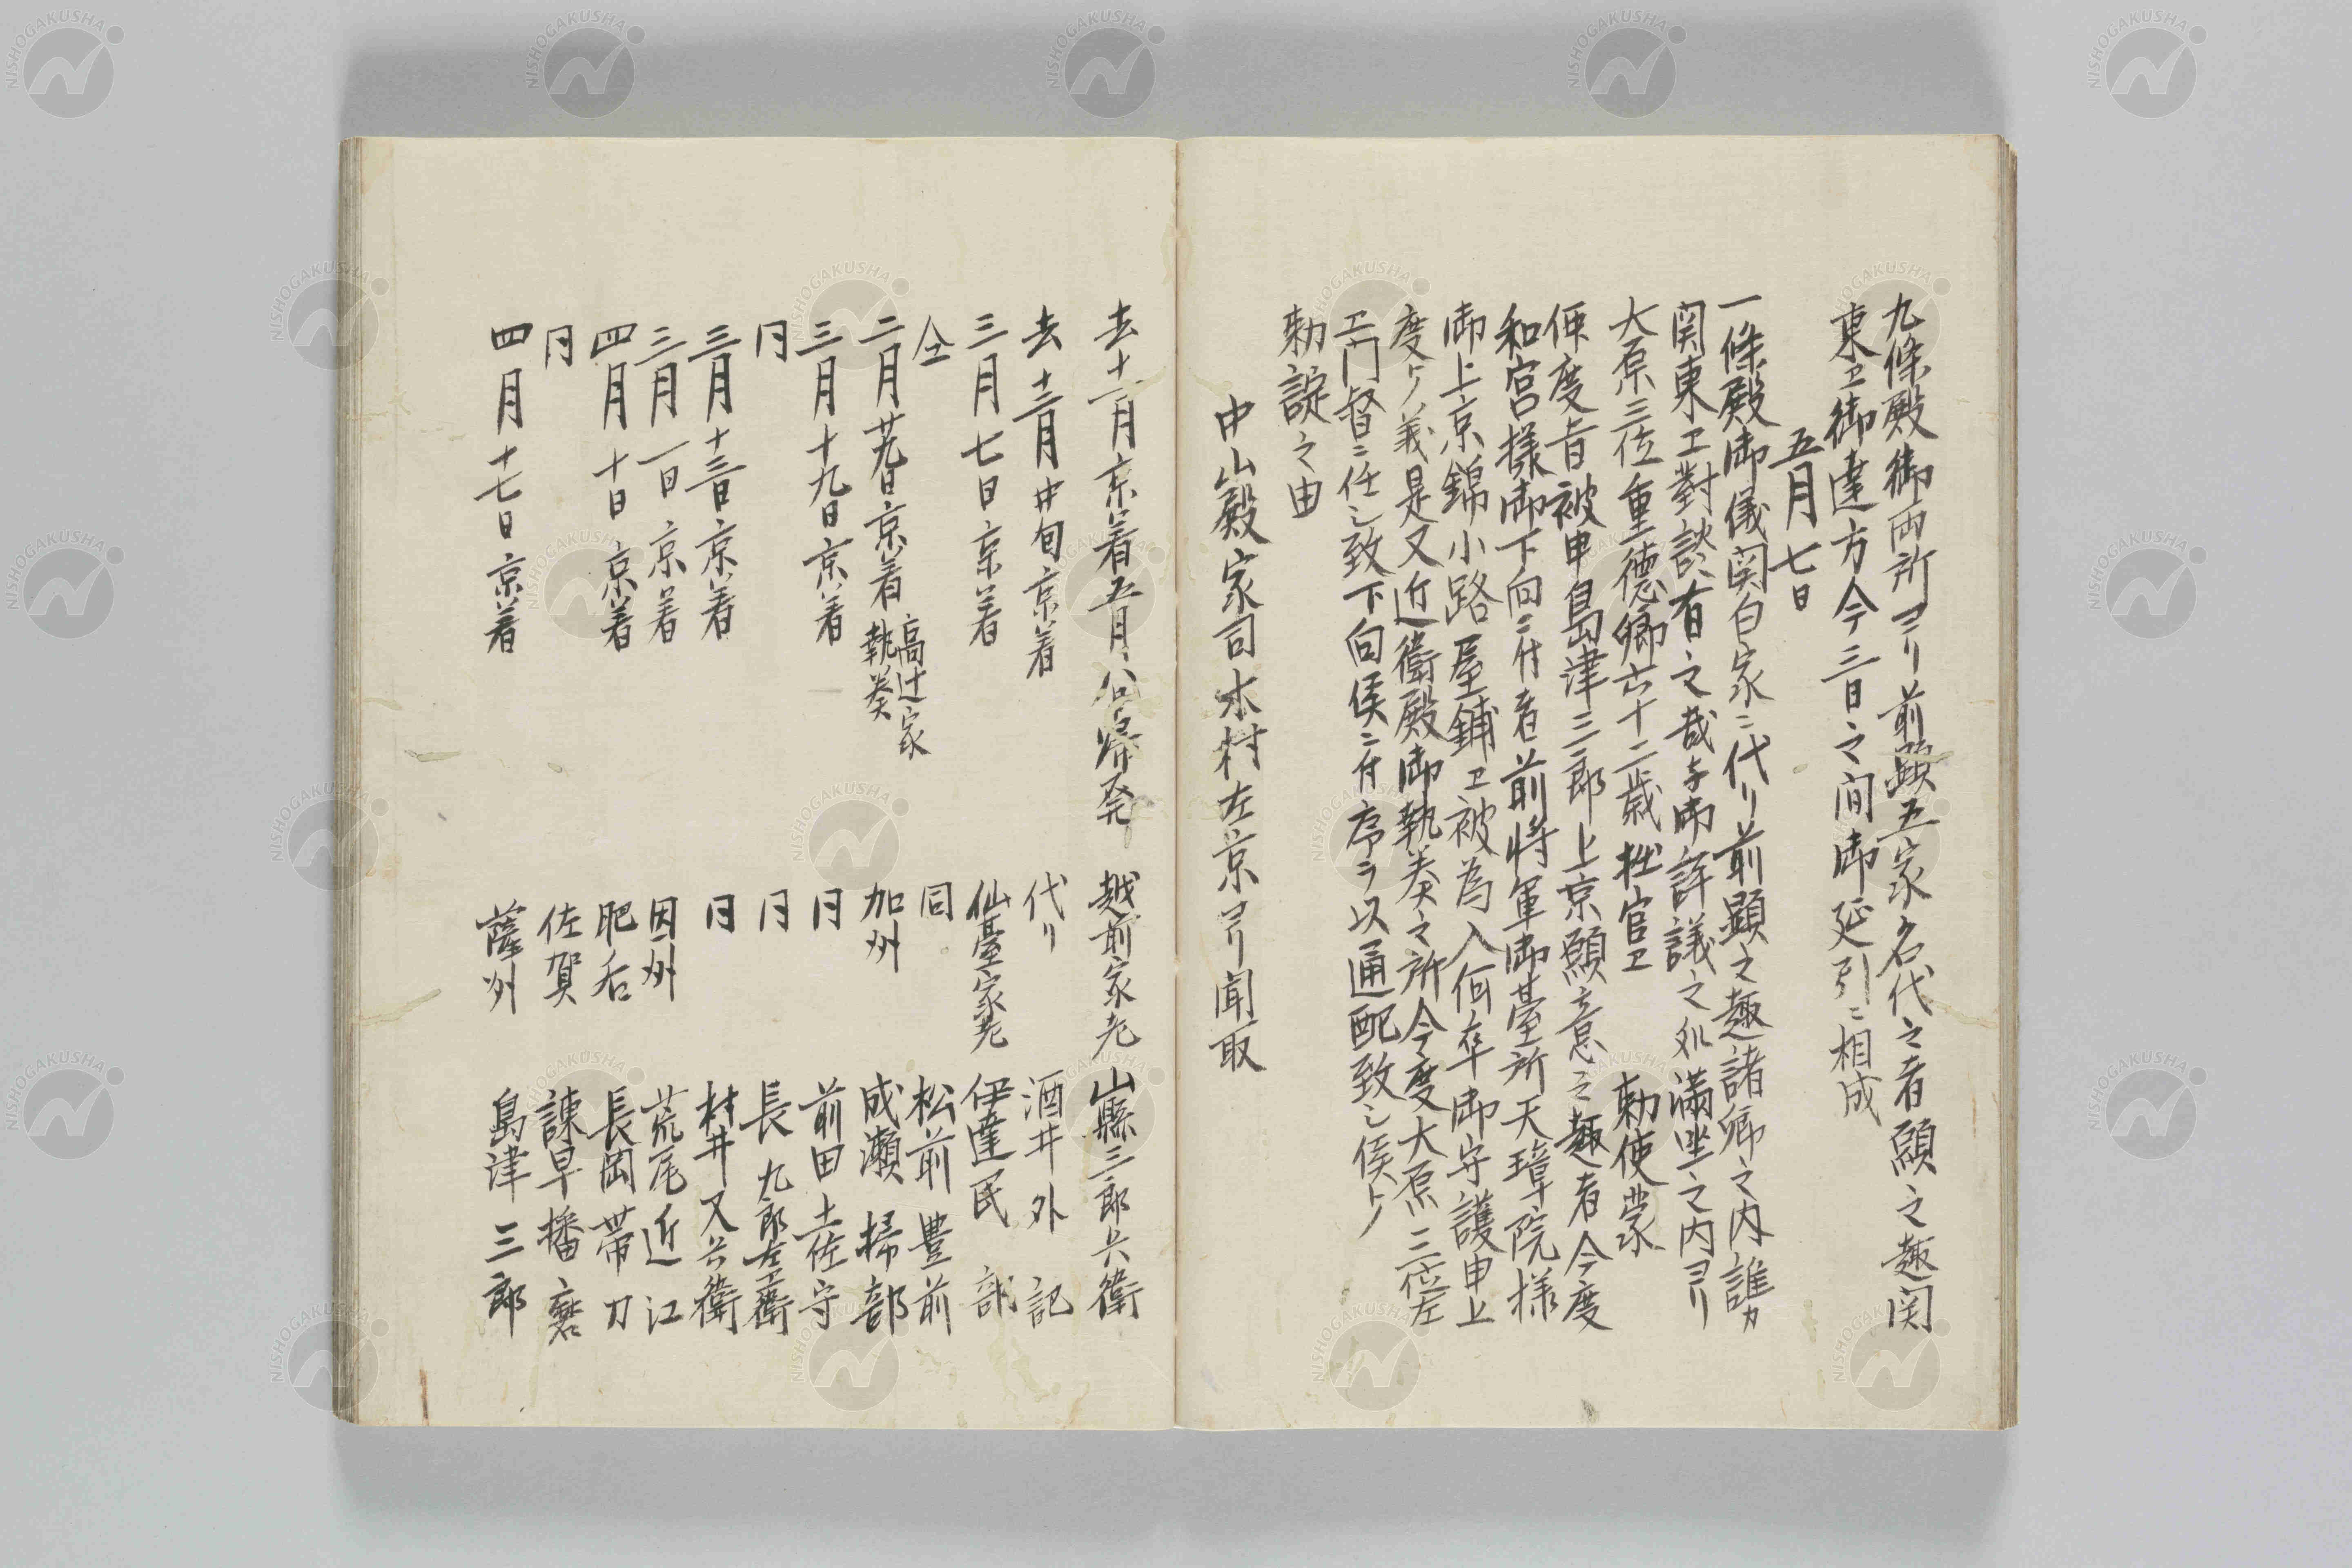 九條殿御両所ヨリ前顕五家名代之者願之趣関
東エ御達方今三日之间御延引ニ相成
五月七日
一條殿御儀関白家ニ代リ前顕之趣諸卿之内誰カ
関東エ對談有之哉与御評議之処満坐之内ヨリ
大原三位重德卿六十二歳 官エ 勅使蒙
度旨被申島津三郎上京願意之趣者今度
和宮様御下向ニ付者前将軍御臺所天璋院様
御上京錦小路屋鋪エ被為入何卒御守護申上
度ケ義是又近衛殿御執奏之所今度大原三位左
エ门督ニ任シ致下向候ニ付序ヲ以通配致シ候ケ
勅諚之由
中山殿家司木村左京ヨリ聞取
去十二月京着五月八日帰発 越前家老 山縣三郎兵衛
去十二月中旬京着 代リ 酒井外記
三月七日京着 仙臺家老 伊達民部
仝 同 松前豊前
二月廿九日京着 高辻家執奏 加州 成瀬掃部
三月十九日京着 同 前田土佐守
同 同 長九郎左衛門
三月十三日京着 同 村井又兵衛
三月一日京着 因州 荒尾近江
四月十日京着 肥后 長岡帯刀
同 佐賀 諫早播磨
四月十七日京着 薩州 島津三郎
NISHOGAKUSHA